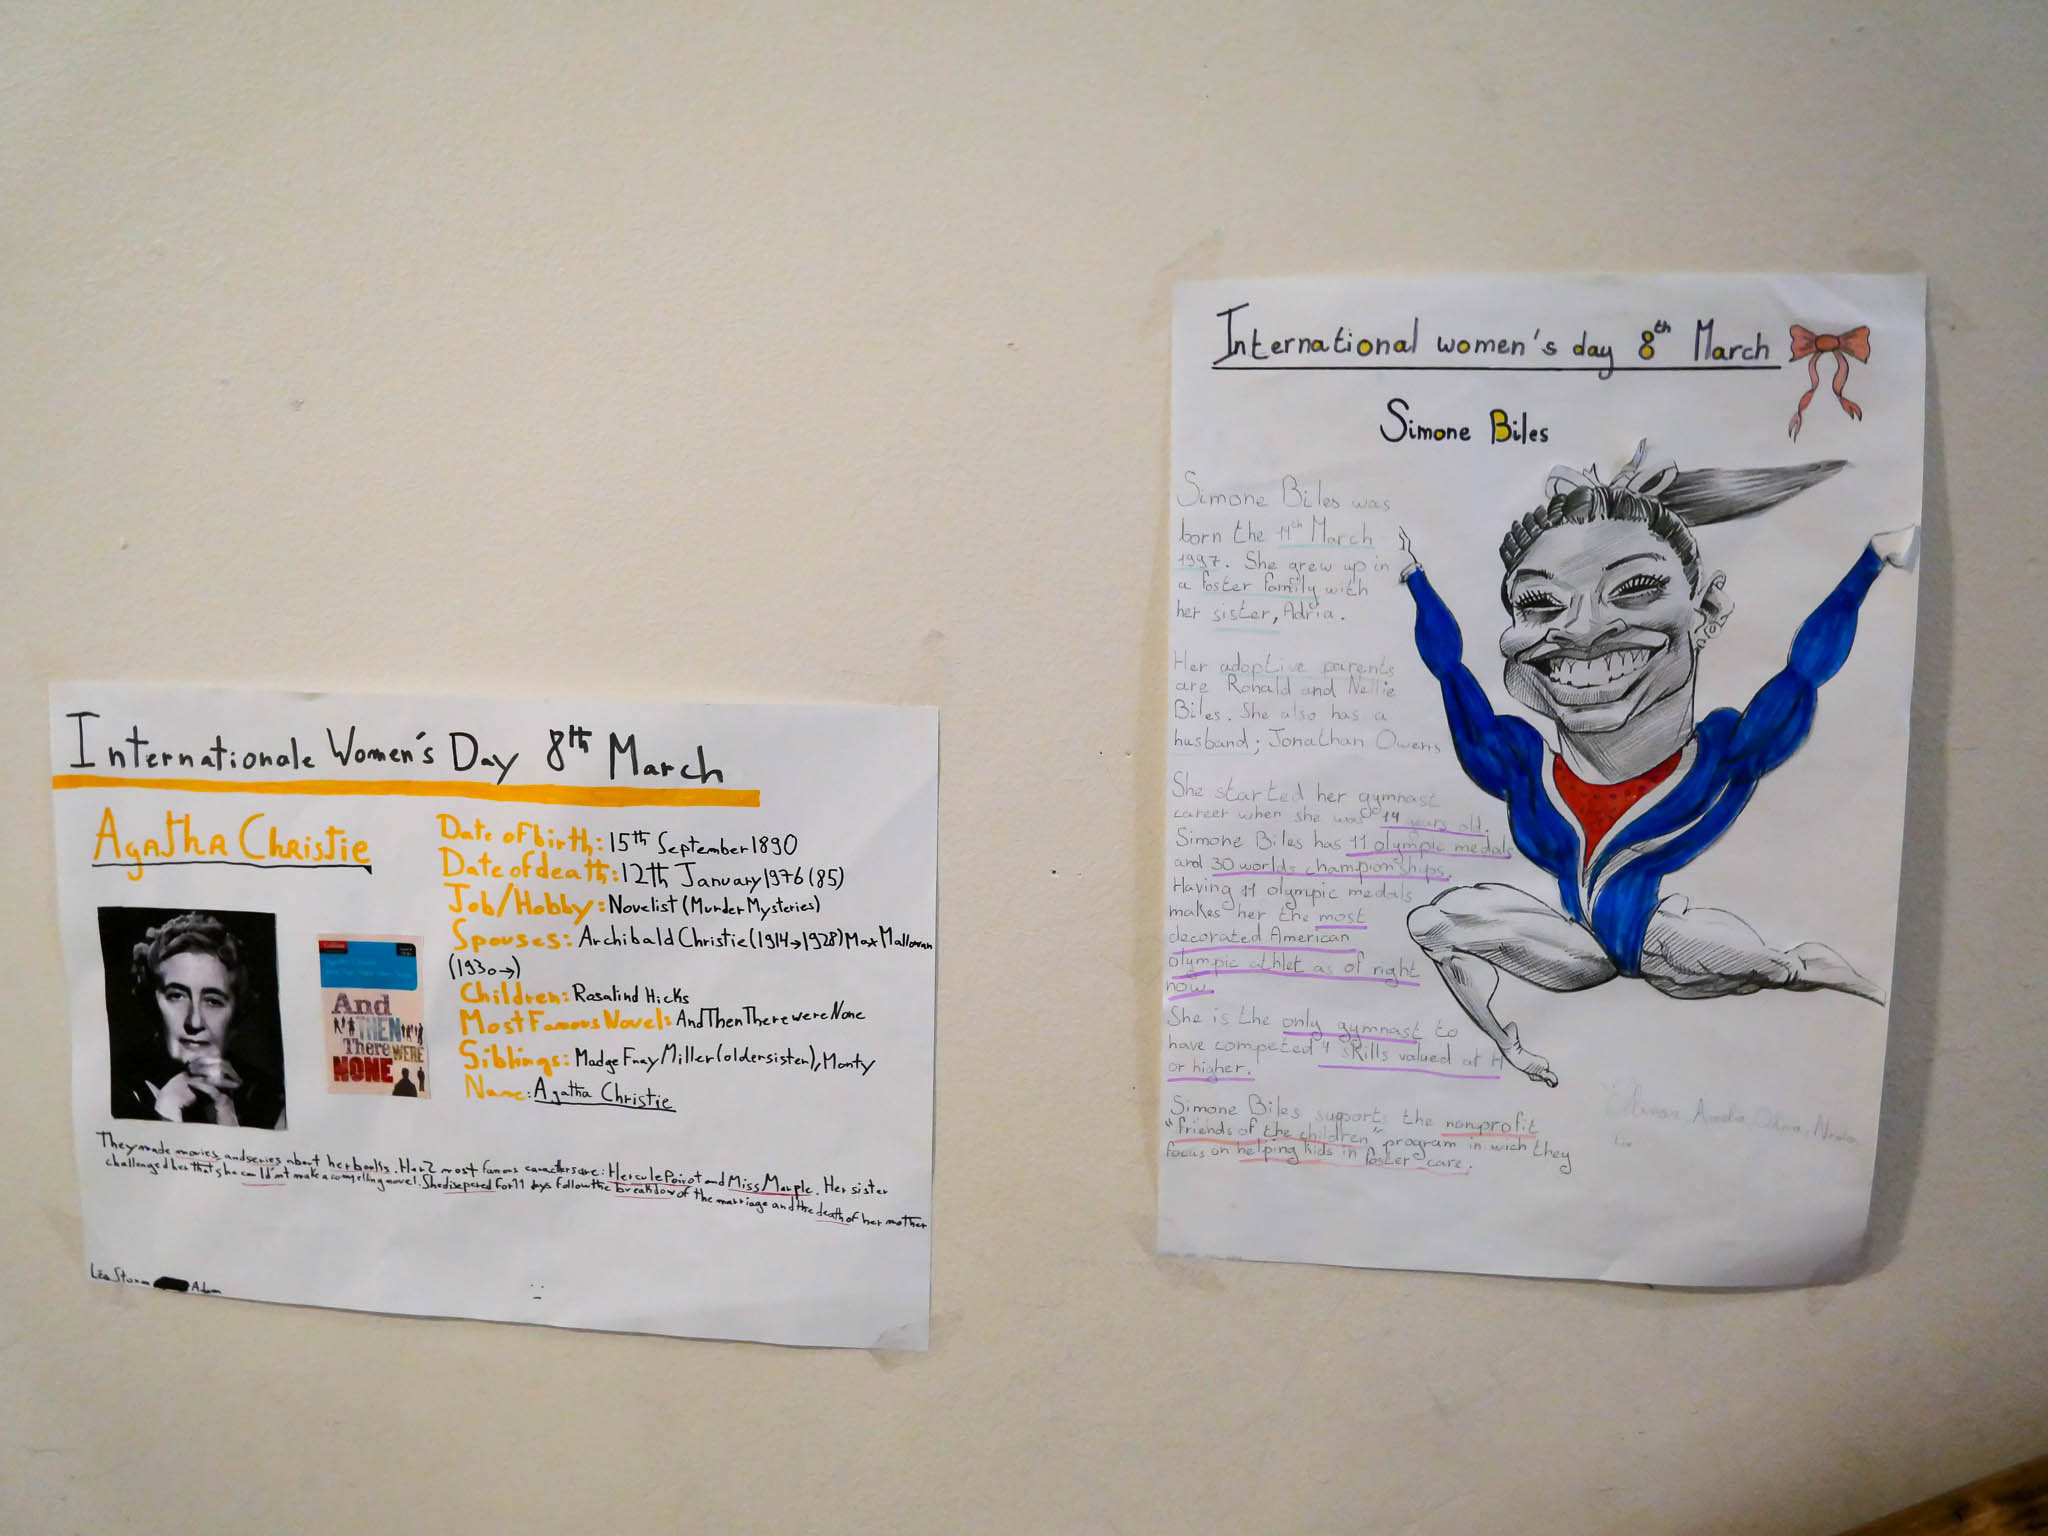 Internationale Women's Day 8th March
Agatha Christie
Date of birth: 15th September 1890
Date of death: 12th January 1976 (85)
Job/Hobby: Novelist (Murder Mysteries)
Spouses: Archibald Christie (1914→1928) Max Mallowan
(1930→)
Children: Rosalind Hicks
Most Famous Novel: And Then There were None
Siblings: Madge Fray Miller (older sister), Monty
Name: Agatha Christie
Collins
And
THEN
There WERE
NONE
They made movies and series about her books. Her 2 most famous caracters are: Hercule Poirot and Miss Marple. Her sister
challenged her that she could'nt make a compelling novel. She disepered for 11 days follow the breakdow of the marriage and the death of her mother
Léa Sturm Adam
International women's day 8th March
Simone Biles
Simone Biles was
born the 14th March
1997. She grew up in
a foster family with
her sister, Adria.
Her adoptive parents
are Ronald and Nellie
Biles. She also has a
husband; Jonathan Owens
She started her gymnast
career when she was 14 years old.
Simone Biles has 11 olympic medals
and 30 worlds championships.
Having 11 olympic medals
makes her the most
decorated American
olympic athlet as of right
now.
She is the only gymnast to
have competed 4 skills valued at H
or higher.
Simone Biles supports the nonprofit
"friends of the children" program in wich they
focus on helping kids in foster care.